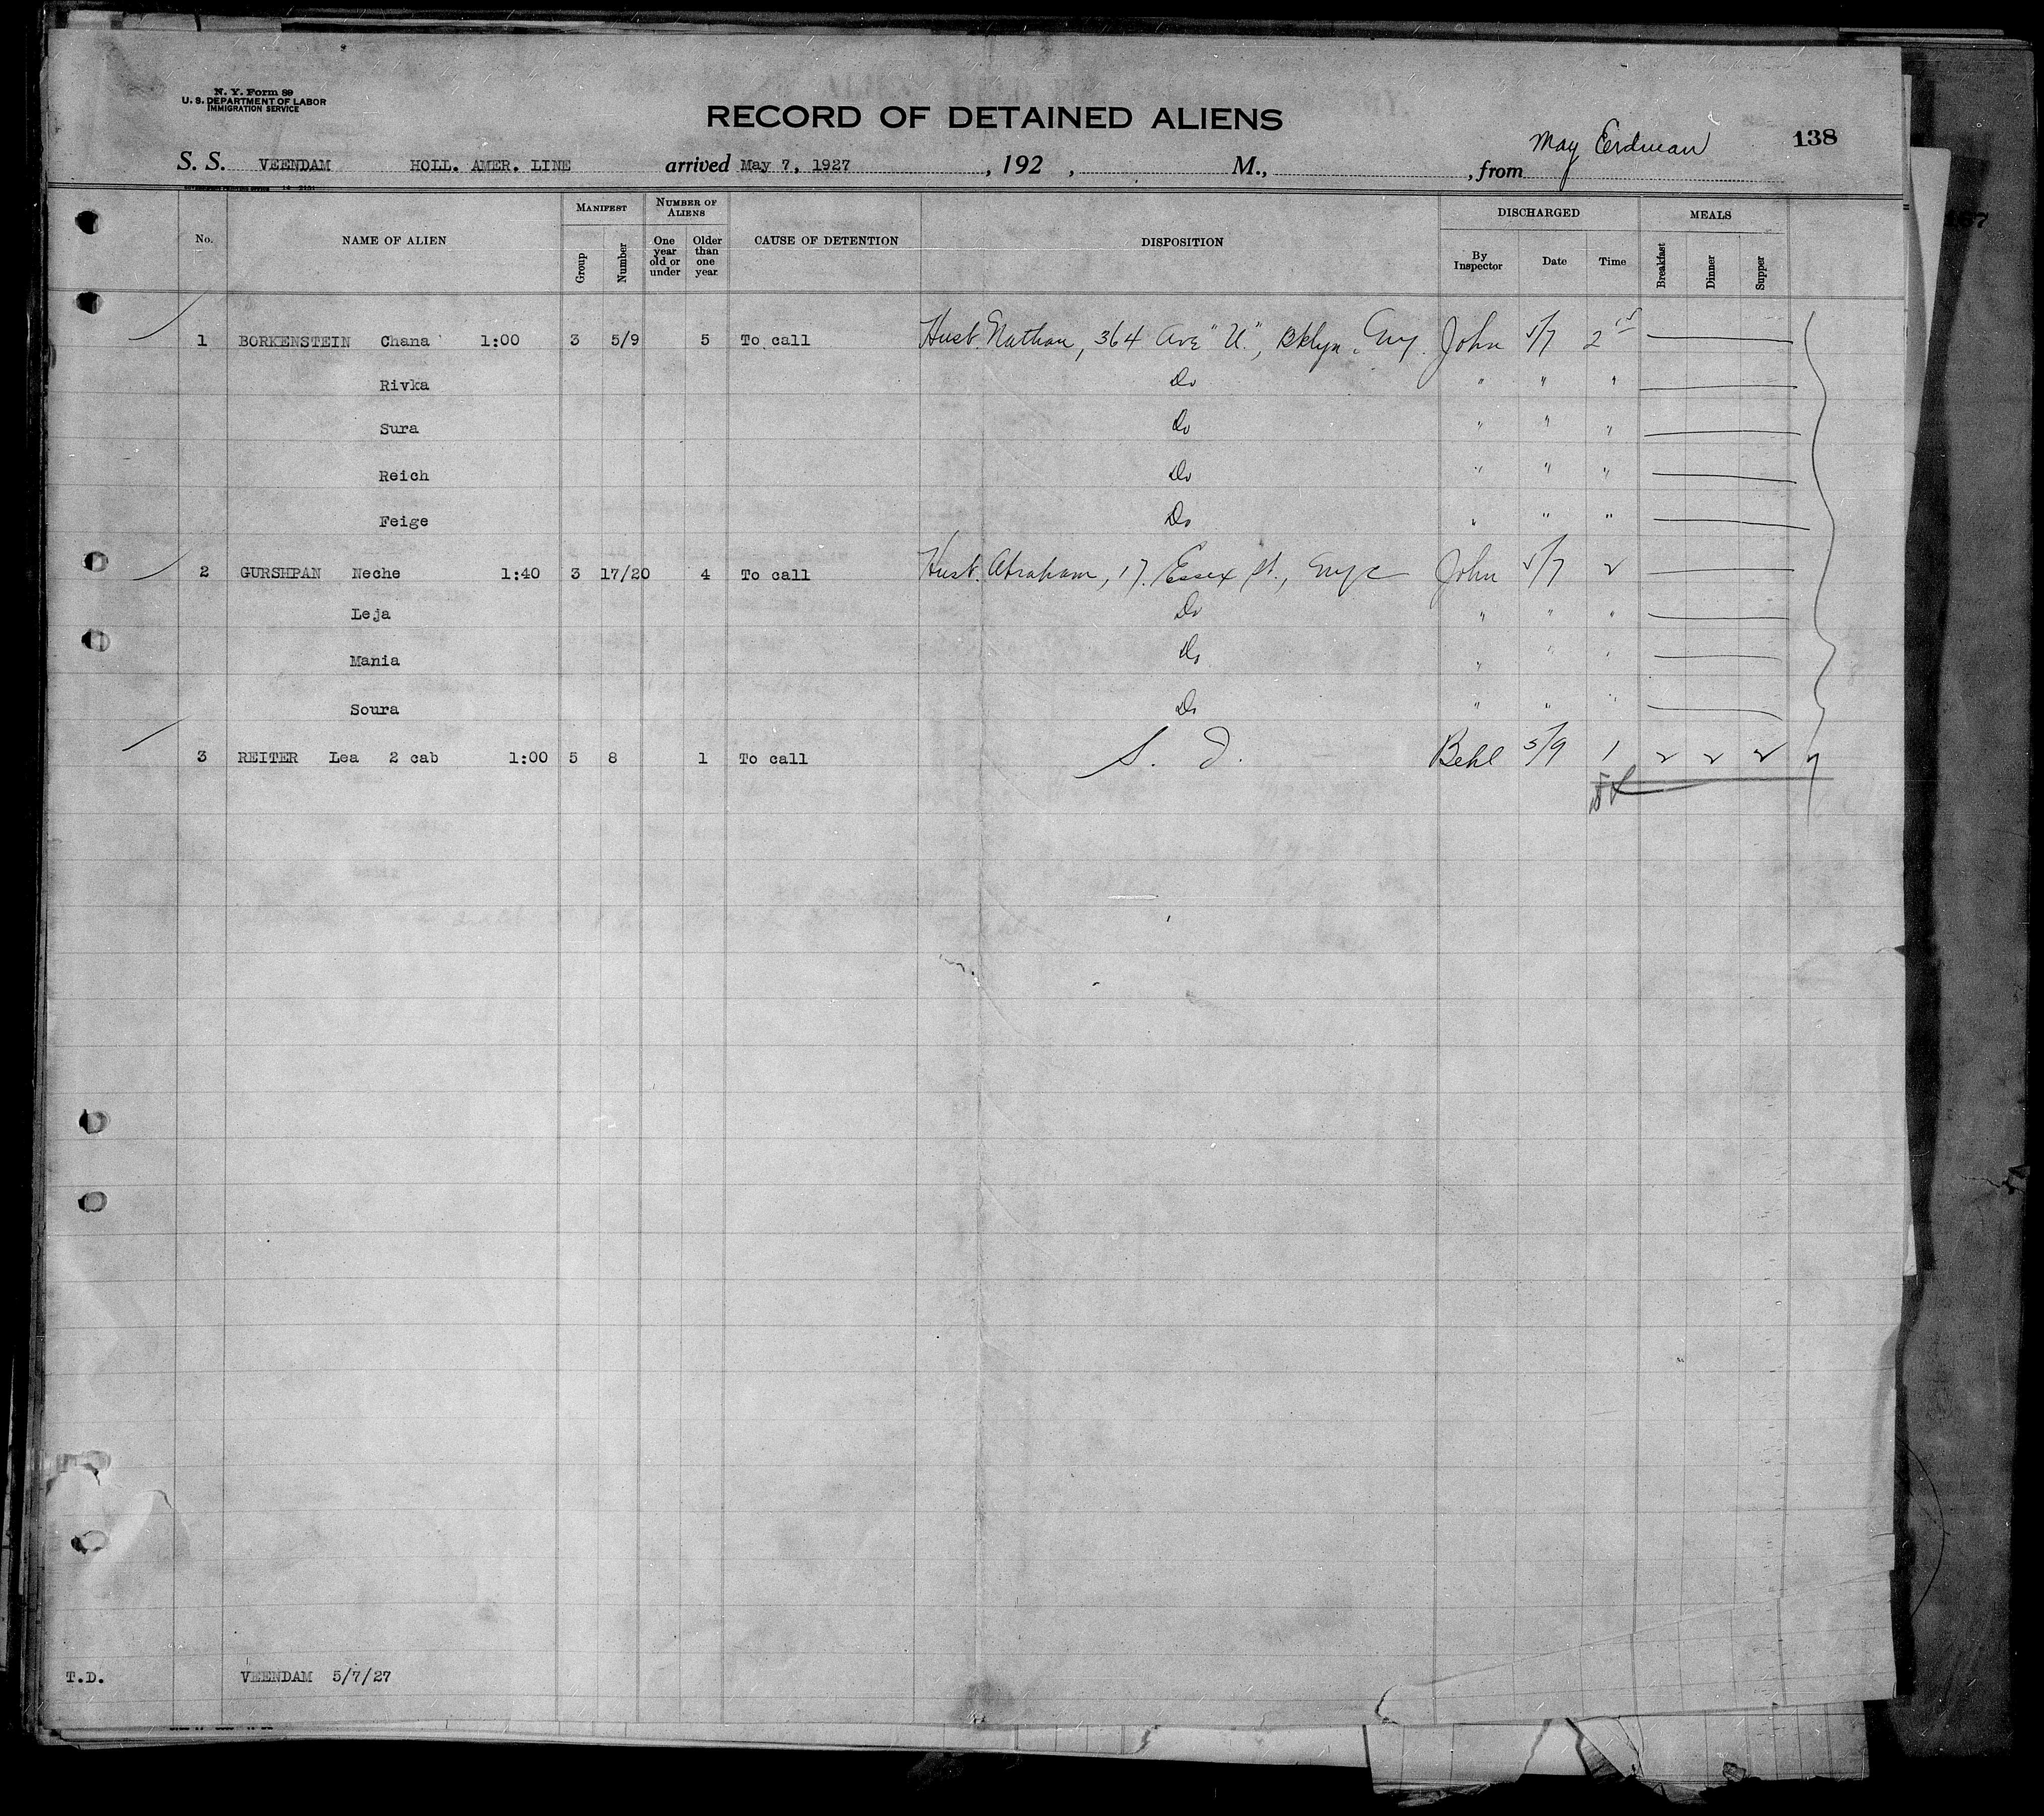 N. Y. Form 89
U. S. DEPARTMENT OF LABOR
IMMIGRATION SERVICE
RECORD OF DETAINED ALIENS
May Erdman
138
S. S. VEENDAM HOLL. AMER. LINE arrived May 7, 1927, 192 , M., , from
No. NAME OF ALIEN MANIFEST Group Number NUMBER OF ALIENS One year old or under Older than one year CAUSE OF DETENTION DISPOSITION DISCHARGED By Inspector Date Time MEALS Breakfast Dinner Supper
1 BORKENSTEIN Chana 1:00 3 5/9 5 To call Husb. Nathan, 364 Ave "U", Bklyn. Ny. John 5/7 2
Rivka Do " " "
Sura Do " " "
Reich Do " " "
Feige Do " " "
2 GURSHPAN Neche 1:40 3 17/20 4 To call Husb. Abraham, 17 Essex St., Nyc John 5/7 2
Leja Do " " "
Mania Do " " "
Soura Do " " "
3 REITER Lea 2 cab 1:00 5 8 1 To call S. I. Behl 5/9 1 2 2 2
T.D. VEENDAM 5/7/27